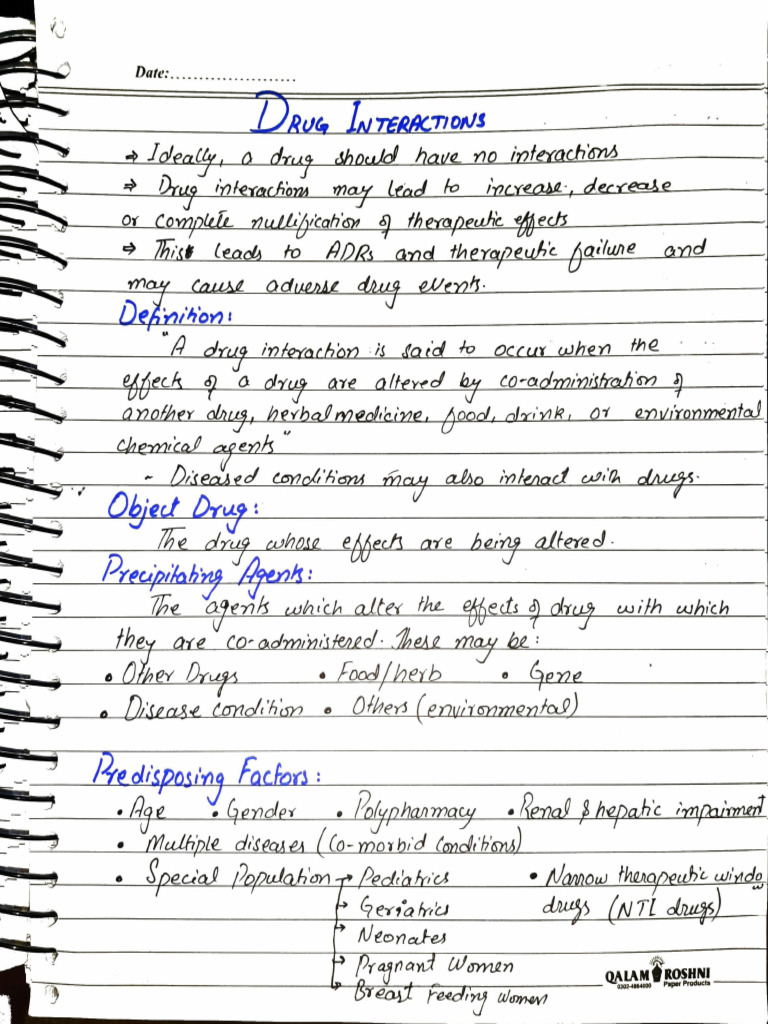 Date:......................
DRUG INTERACTIONS
⇒ Ideally, a drug should have no interactions
⇒ Drug interactions may lead to increase, decrease
or complete nullification of therapeutic effects
⇒ This leads to ADRs and therapeutic failure and
may cause adverse drug events.
Definition:
"A drug interaction is said to occur when the
effects of a drug are altered by co-administration of
another drug, herbal medicine, food, drink, or environmental
chemical agents"
- Diseased conditions may also interact with drugs.
Object Drug:
The drug whose effects are being altered.
Precipitating Agents:
The agents which alter the effects of drug with which
they are co-administered. These may be:
• Other Drugs • Food/herb • Gene
• Disease condition • Others (environmental)
Predisposing Factors:
• Age • Gender • Polypharmacy • Renal & hepatic impairment
• Multiple diseases (Co-morbid conditions)
• Special Population → Pediatrics • Narrow therapeutic window
→ Geriatrics drugs (NTI drugs)
→ Neonates
→ Pragnant Women
→ Breast Feeding Women
QALAM ROSHNI
0302-4864000 Paper Products